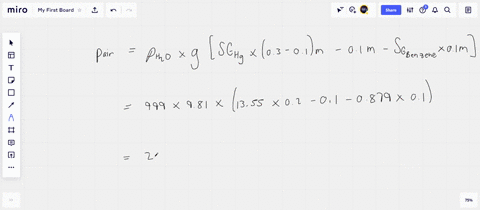 miro My First Board Share
Pair = ρH₂O × g [SG_Hg × (0.3 - 0.1)m - 0.1m - SG_Benzene × 0.1m]
= 999 × 9.81 × (13.55 × 0.2 - 0.1 - 0.879 × 0.1)
= 2
75%